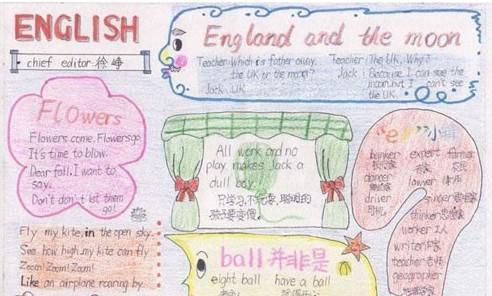 ENGLISH
chief editor 徐峥
England and the moon
Teacher: Which is father away,
the UK or the moon?
Jack: UK
Teacher: The UK. Why?
Jack: Because I can see the
moon, but I can't see
the UK.
Flowers
Flowers come, Flowersgo
It's time to blow.
Dear fall, I want to
say.
Don't don't let them
go!
All work and no
play makes Jack a
dull boy.
只学习,不玩耍,聪明的
孩子要变傻。
"er"小
banker
dancer
driver
司机
expert
lawyer
farmer
singer
thinker
worker 工人
writer 作家
teacher 老师
geographer
Fly my kite, in the open sky.
See how high my kite can fly
Zoom! Zoom! Zoom!
Like an airplane roaring by.
ball 并非是
eight ball have a ball